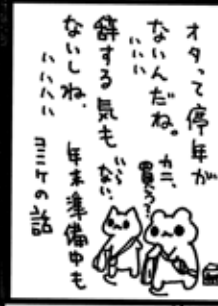 オタって停年が
ないんだね。
いいい
辞する気も
ないしね、
いいいい
カニ、
買う?
いらない。
年末準備中も
コミケの話